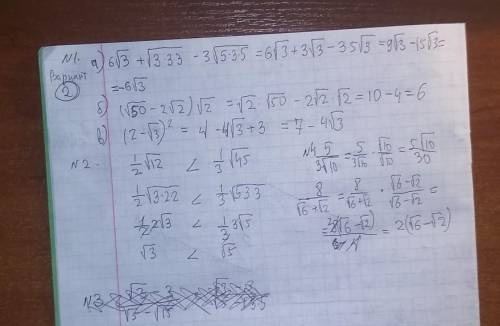 N1.
Вариант
2
а) 6√3 + √3·3·3 - 3√5·3·5 = 6√3 + 3√3 - 3·5√3 = 9√3 - 15√3 =
= -6√3
б) (√50 - 2√2)√2 = √2 · √50 - 2√2 · √2 = 10 - 4 = 6
в) (2 - √3)² = 4 - 4√3 + 3 = 7 - 4√3
N2. 1/2 √12 < 1/3 √45
1/2 √3·2·2 < 1/3 √5·3·3
1/2 2√3 < 1/3 3√5
√3 < √5
N4 5/3√10 = 5/3√10 · √10/√10 = 5√10/30
8/√6+√2 = 8/√6+√2 · √6-√2/√6-√2 =
= 8(√6-√2)/4 = 2(√6-√2)
N3